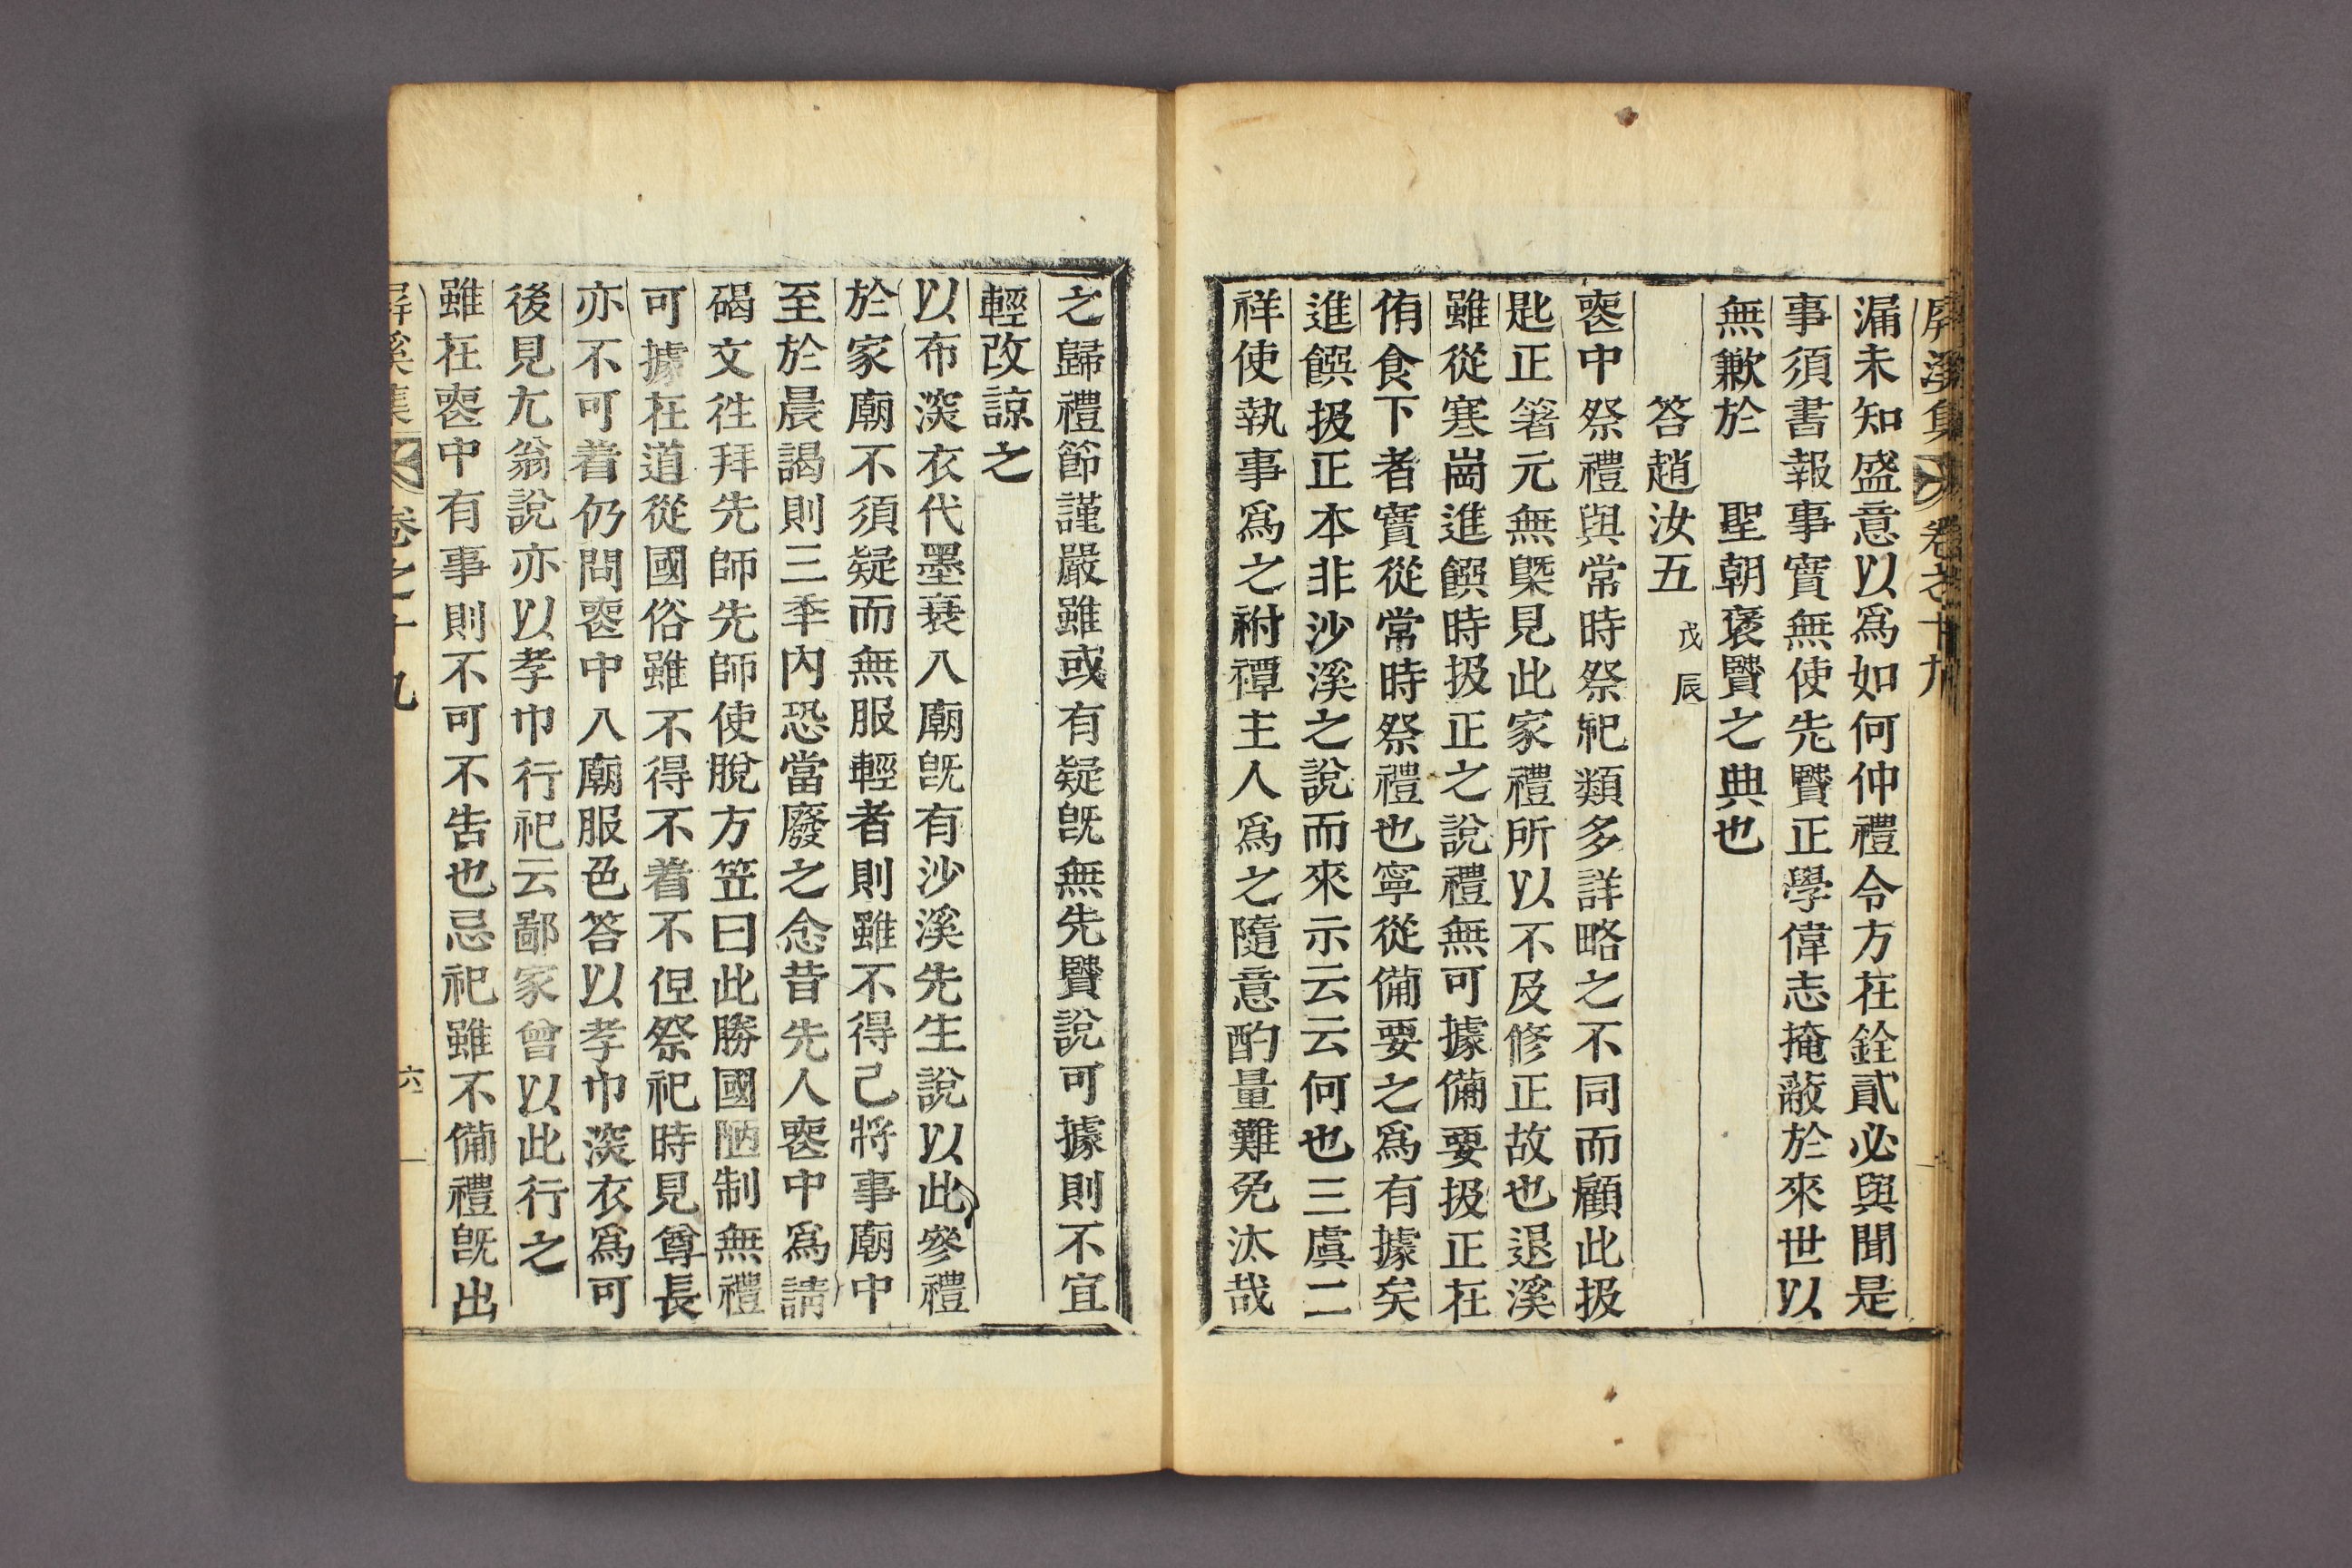 屛溪集 卷之十九
漏未知盛意以爲如何仲禮令方在銓貳必與聞是
事須書報事實無使先賢正學偉志掩蔽於來世以
無歉於 聖朝褒贒之典也
答趙汝五 戊辰
喪中祭禮與常時祭祀類多詳略之不同而顧此扱
匙正箸元無槩見此家禮所以不及修正故也退溪
雖從寒岡進饌時扱正之說禮無可據備要扱正在
侑食下者實從常時祭禮也寧從備要之爲有據矣
進饌扱正本非沙溪之說而來示云云何也三虞二
祥使執事爲之祔禫主人爲之隨意酌量難免汰哉
之歸禮節謹嚴雖或有疑旣無先贒說可據則不宜
輕改諒之
以布深衣代墨衰入廟旣有沙溪先生說以此參禮
於家廟不須疑而無服輕者則雖不得已將事廟中
至於晨謁則三年內恐當廢之念昔先人喪中爲請
碣文徃拜先師先師使脫方笠曰此勝國陋制無禮
可據在道從國俗雖不得不着不但祭祀時見尊長
亦不可着仍問喪中入廟服色答以孝巾深衣爲可
後見尤翁說亦以孝巾行祀云鄙家曾以此行之
雖在喪中有事則不可不告也忌祀雖不備禮旣出
屛溪集 卷之十九 六